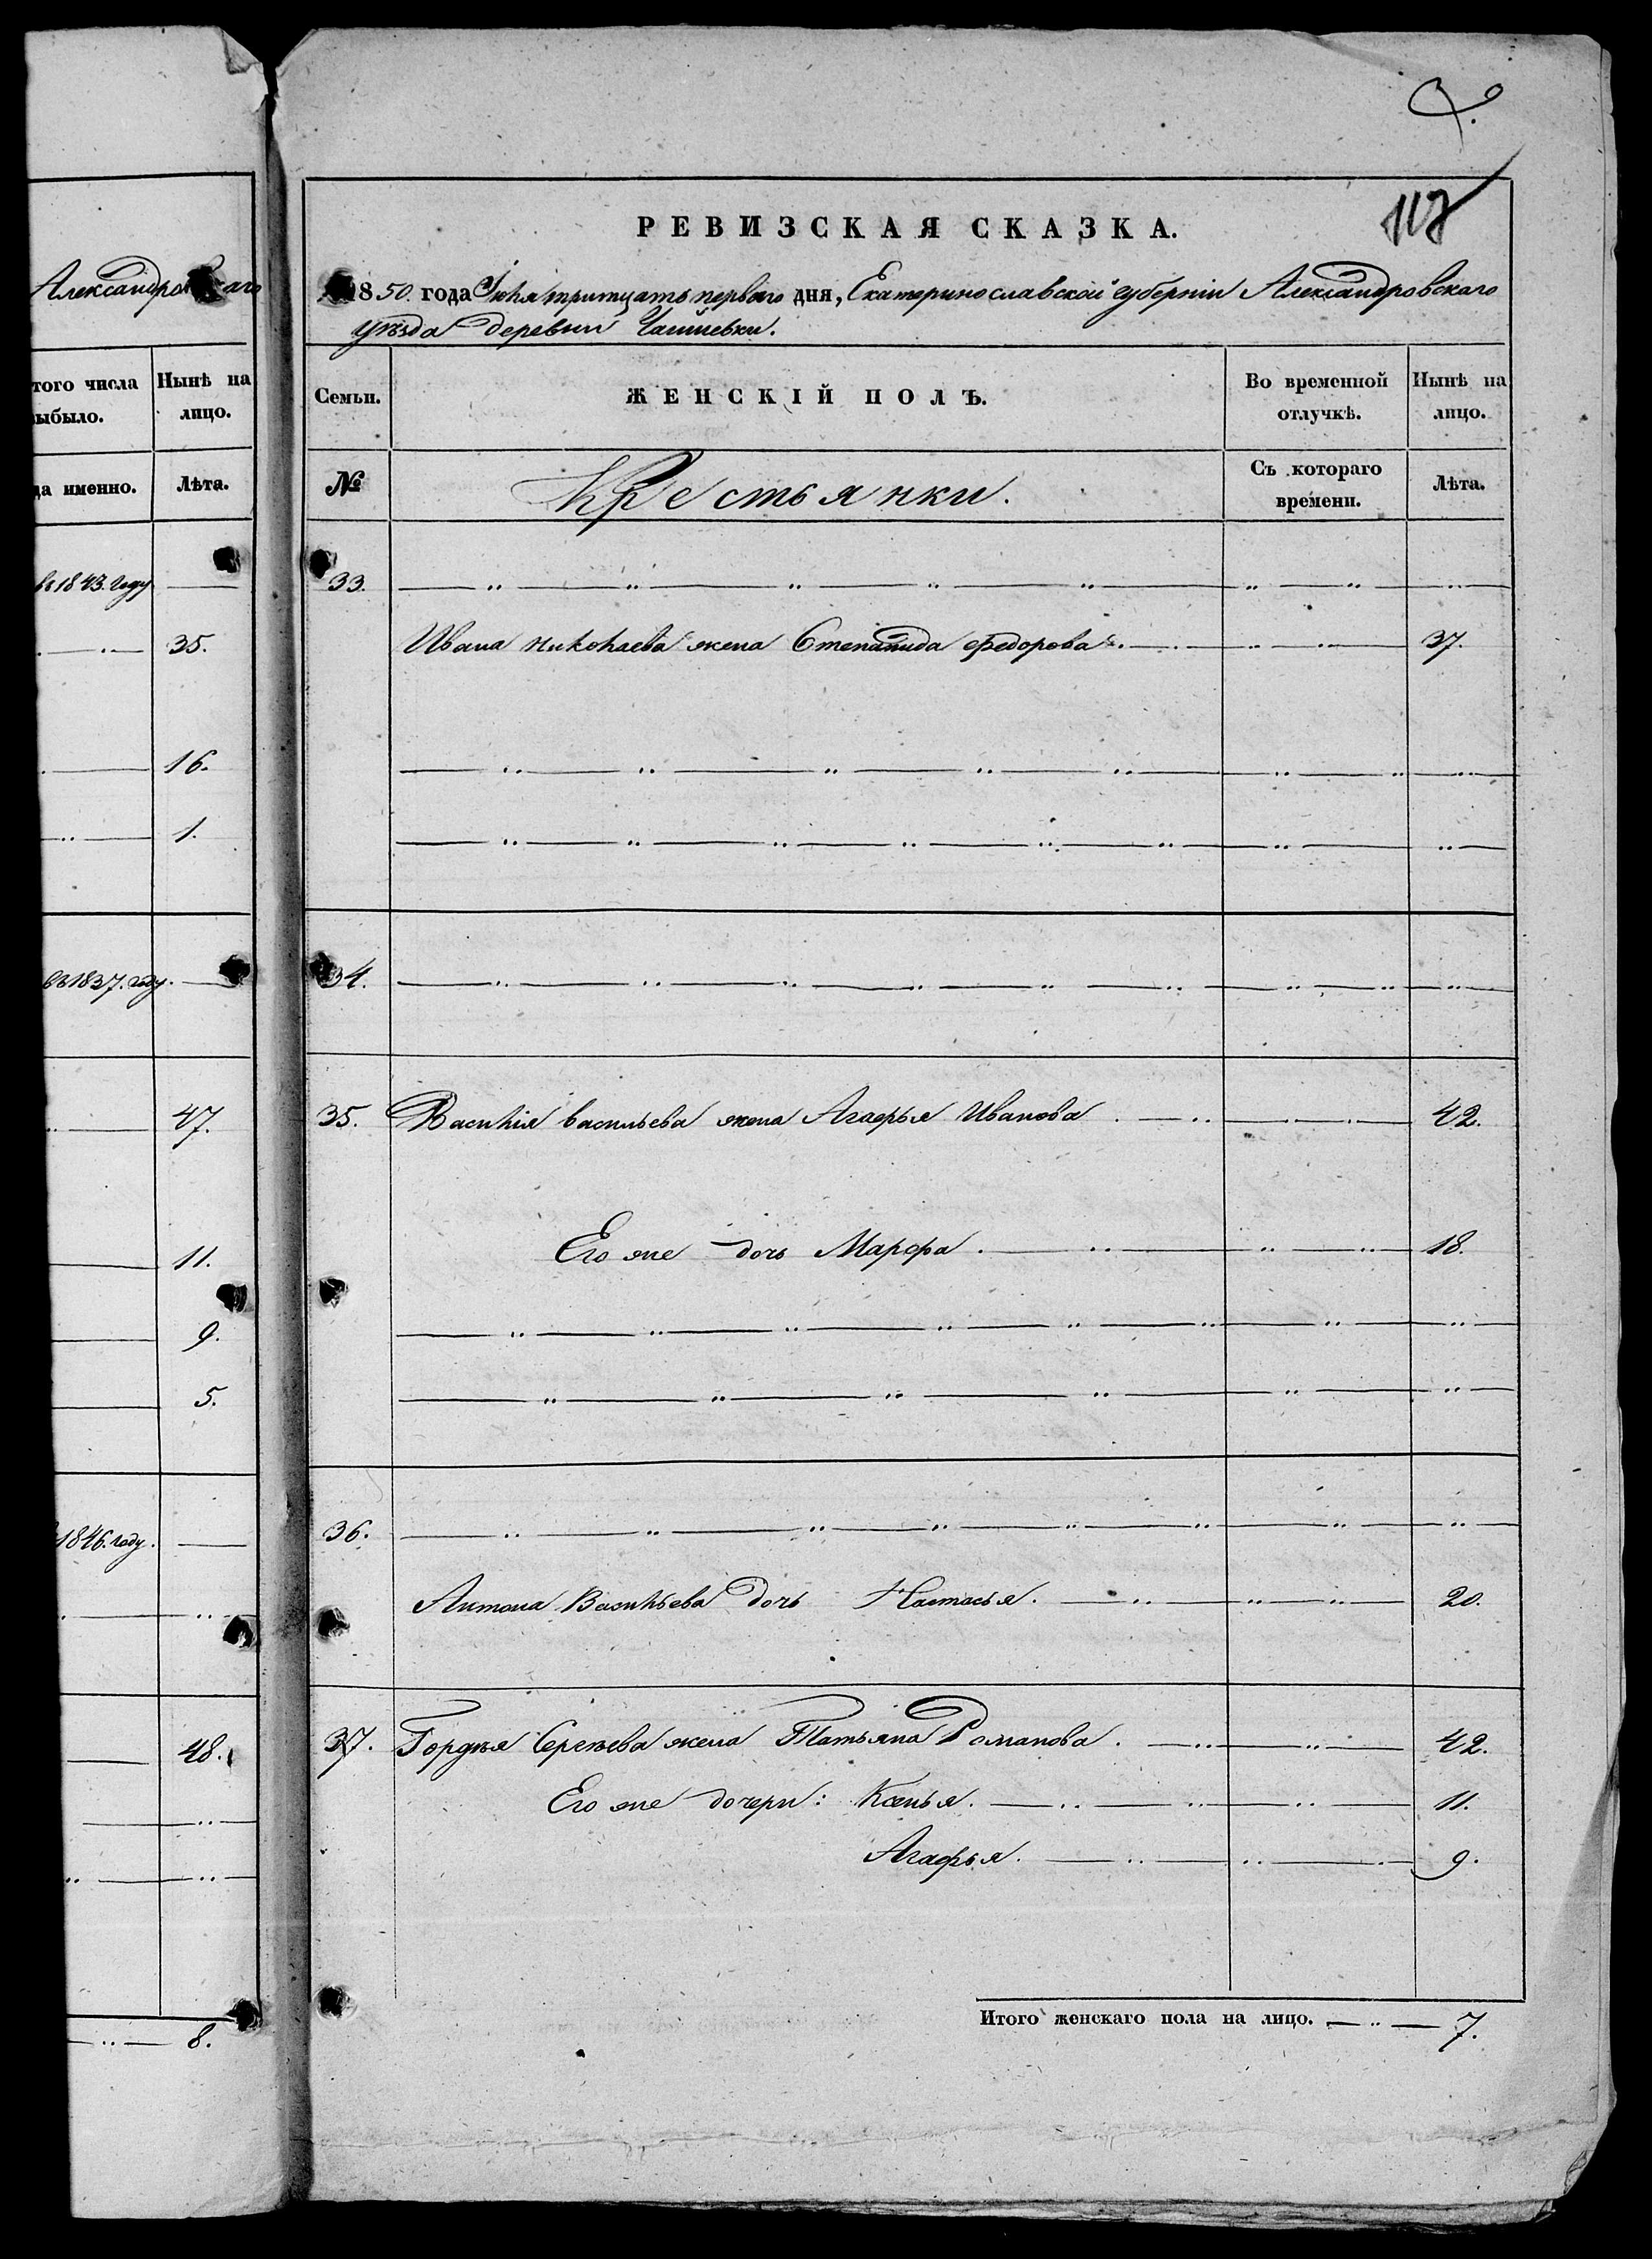 Александро
того числа Нынѣ на
выбыло. лицо.
да именно. Лѣта.
въ 1843. году
35.
16.
1.
въ 1837. году.
47.
11.
9.
5.
1846. году.
48.
8.
117
РЕВИЗСКАЯ СКАЗКА.
1850. года Іюля тритцать перваго дня, Екатеринославской губерніи Александровскаго
уѣзда деревни
Семьи. ЖЕНСКІЙ ПОЛЪ. Во временной отлучкѣ. Нынѣ на лицо.
№ Крестьянки. Съ котораго времени. Лѣта.
33.
Ивана Николаева жена Степанида Федорова 37.
34.
35. Василія Васильева жена Агафья Иванова 42.
Его же дочь Марфа. 18.
36.
Антона Васильева дочь Настасья. 20.
37. Гордѣя Сергѣева жена Татьяна Романова. 42.
Его же дочери: Ксенья. 11.
Агафья. 9.
Итого женскаго пола на лицо. 7.